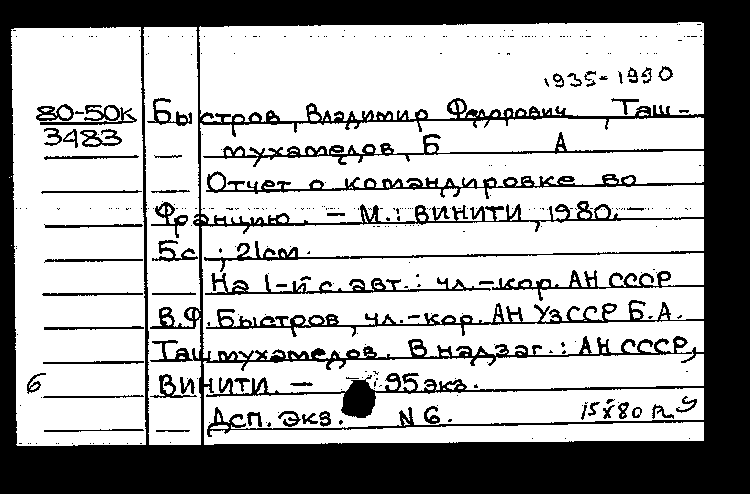 1935-1990
80-50к Быстров, Владимир Федорович, Таш-
3483
мухамедов, Б А
Отчет о командировке во
Францию. - М.: ВИНИТИ, 1980.-
5с ; 21см.
На 1-й с. авт.: чл.-кор. АН СССР
В.Ф. Быстров, чл.-кор. АН УзССР Б.А.
Ташмухамедов. В надзаг.: АН СССР,
6 ВИНИТИ. - 95 экз.
Дсп. экз. N 6. 15X80